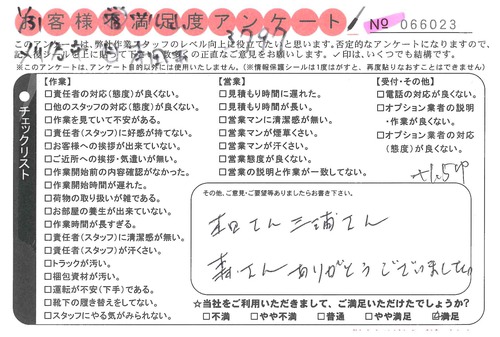 お客様満足度アンケート
№ 066023
このアンケートは、弊社作業スタッフのレベル向上に役立てたいと思います。否定的なアンケートになりますので、
※このアンケートは、アンケート目的以外には使用いたしません。(※情報保護シールは1度はがすと、再度貼りなおすことはできません)
チェックリスト
【作業】
□責任者の対応(態度)が良くない。
□他のスタッフの対応(態度)が良くない。
□作業を見ていて不安がある。
□責任者(スタッフ)に好感が持てない。
□お客様への挨拶が出来ていない。
□ご近所への挨拶・気遣いが無い。
□作業開始前の内容確認がなかった。
□作業開始時間が遅れた。
□荷物の取り扱いが雑である。
□お部屋の養生が出来ていない。
□作業時間が長すぎる。
□責任者(スタッフ)に清潔感が無い。
□責任者(スタッフ)が汗くさい。
□トラックが汚い。
□梱包資材が汚い。
□運転が不安(下手)である。
□靴下の履き替えをしてない。
□スタッフにやる気がみられない。
【営業】
□見積もり時間に遅れた。
□見積もり時間が長い。
□営業マンに清潔感が無い。
□営業マンが煙草くさい。
□営業マンが汗くさい。
□営業態度が良くない。
□営業の説明と作業が一致してない。
【受付・その他】
□電話の対応が良くない。
□オプション業者の説明
・作業が良くない。
□オプション業者の対応
(態度)が良くない。
その他、ご意見・ご要望等ありましたらお書き下さい。
さん 三浦さん
森さん ありがとうございました。
☆当社をご利用いただきまして、ご満足いただけたでしょうか?
□不満 □やや不満 □普通 □やや満足 ☑満足